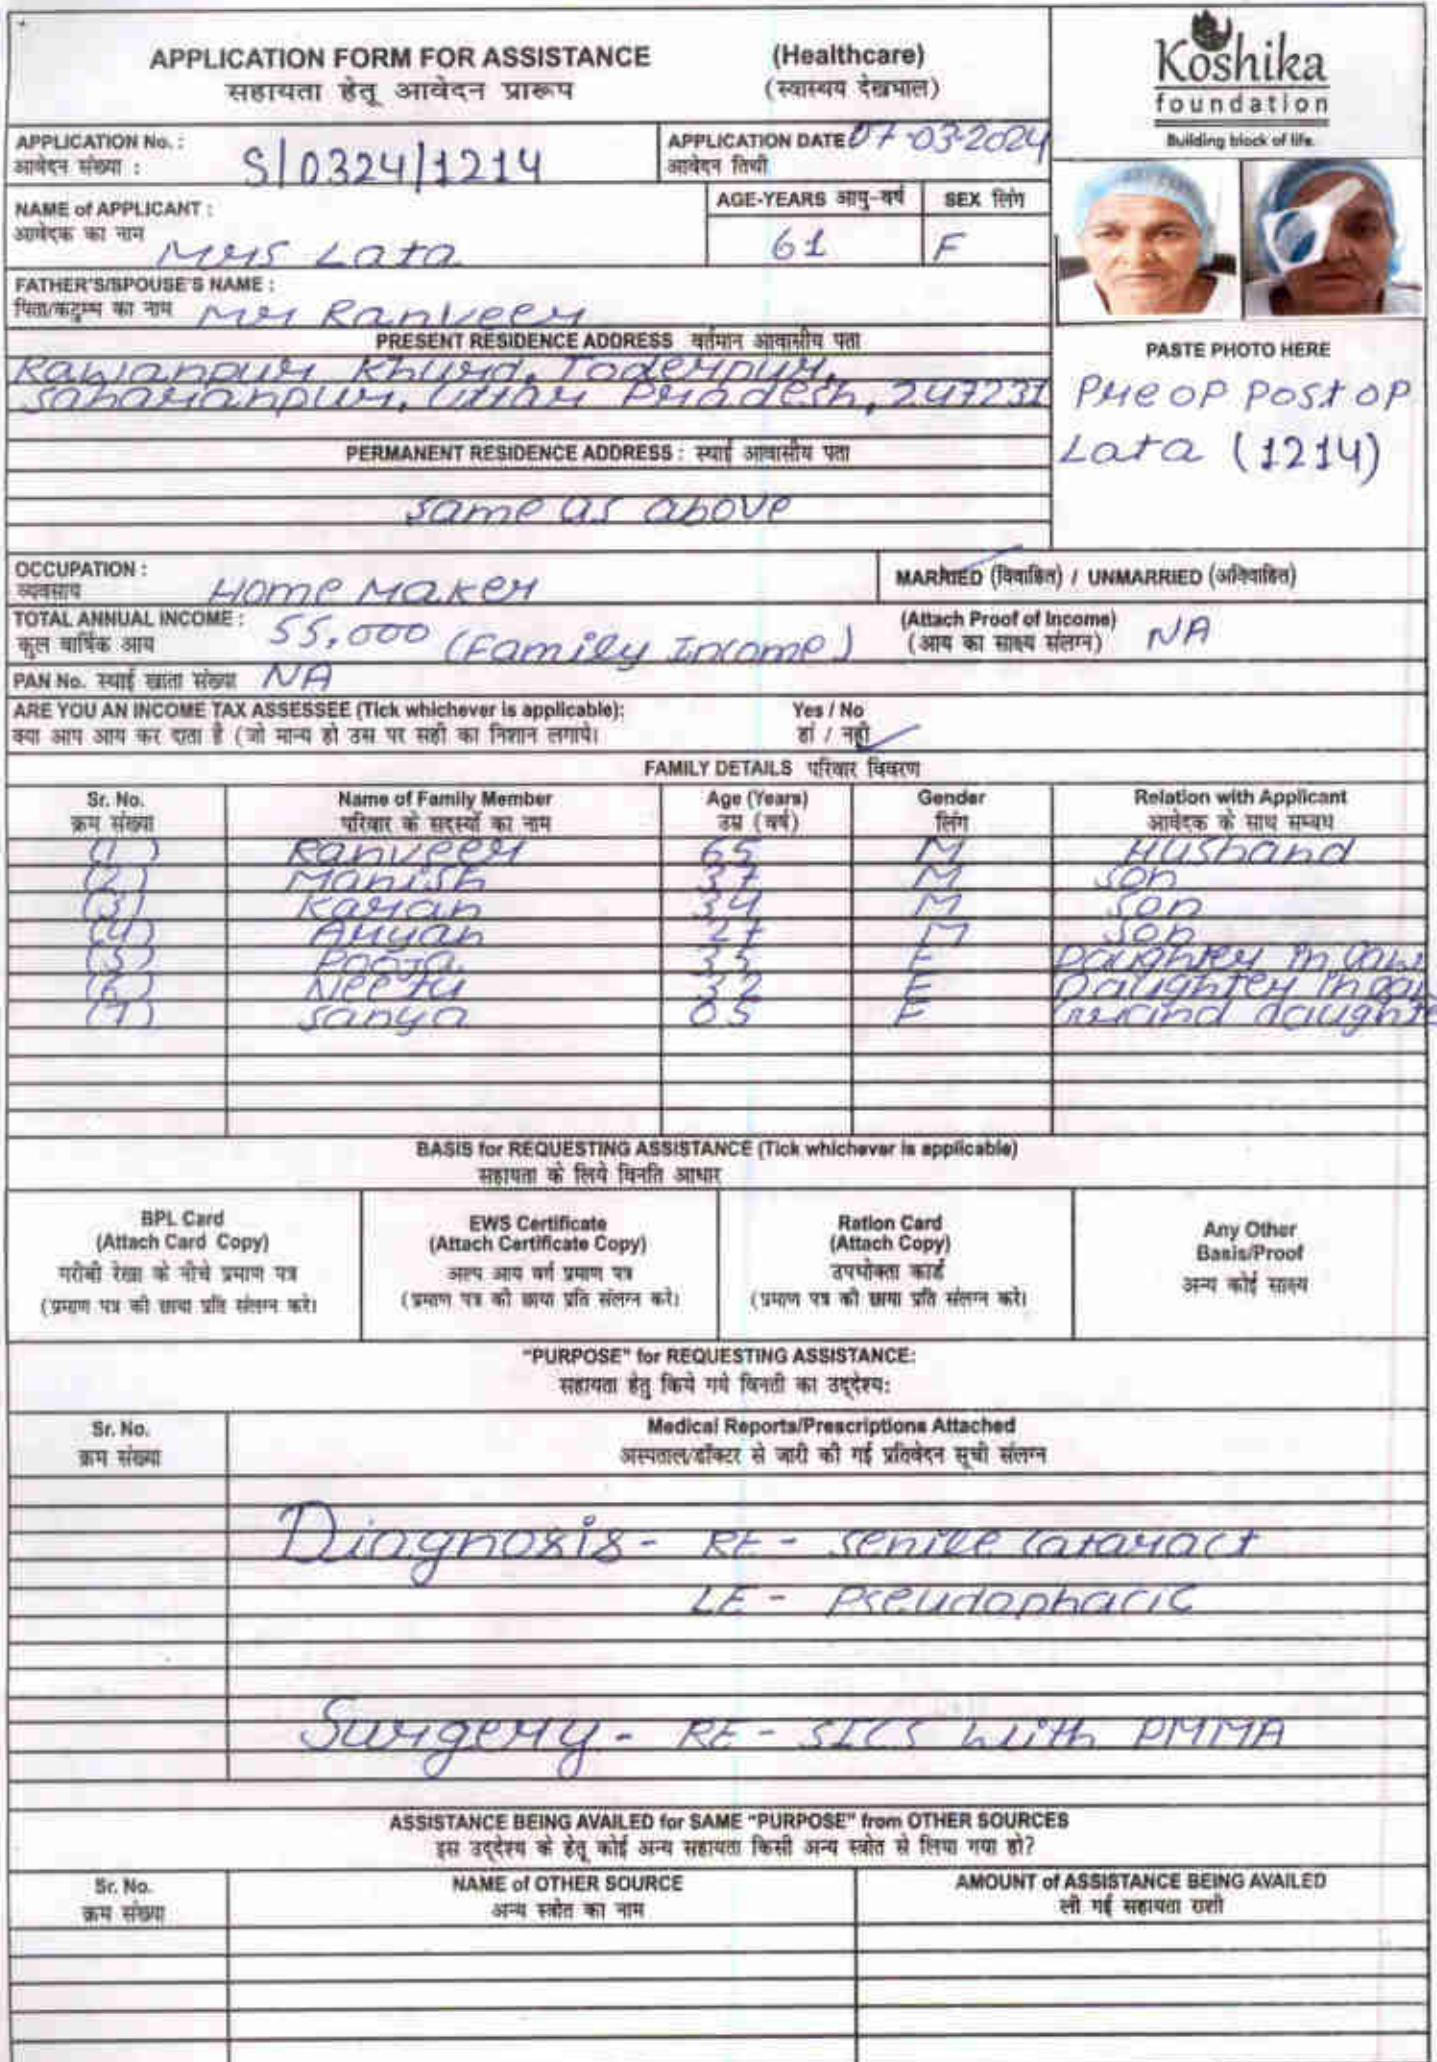 APPLICATION FORM FOR ASSISTANCE (Healthcare)
सहायता हेतू आवेदन प्रारूप (स्वास्थय देखभाल)
Koshika
foundation
Building block of life.
APPLICATION No. : S/0324/1214 APPLICATION DATE 07-03-2024
आवेदन संख्या : आवेदन तिथी
NAME of APPLICANT : AGE-YEARS आयु-वर्ष SEX लिंग
आवेदक का नाम Mrs Lata 61 F
FATHER'S/SPOUSE'S NAME :
पिता/कटुम्ब का नाम Mr Ranveer
PRESENT RESIDENCE ADDRESS वर्तमान आवासीय पता
Khurd, Toderpur,
Saharanpur, Uttar Pradesh, 247231
PASTE PHOTO HERE
Pre OP Post OP
Lata (1214)
PERMANENT RESIDENCE ADDRESS : स्थाई आवासीय पता
same as above
OCCUPATION :
व्यवसाय Home Maker
MARRIED (विवाहित) / UNMARRIED (अविवाहित)
TOTAL ANNUAL INCOME : 55,000 (Family Income)
कुल वार्षिक आय
(Attach Proof of Income) NA
(आय का साक्ष्य संलग्न)
PAN No. स्थाई खाता संख्या NA
ARE YOU AN INCOME TAX ASSESSEE (Tick whichever is applicable): Yes / No
क्या आप आय कर दाता है (जो मान्य हो उस पर सही का निशान लगाये। हां / नही
FAMILY DETAILS परिवार विवरण
Sr. No. Name of Family Member Age (Years) Gender Relation with Applicant
क्रम संख्या परिवार के सदस्यों का नाम उम्र (वर्ष) लिंग आवेदक के साथ सम्बध
(1) Ranveer 65 M Husband
(2) Manish 37 M Son
(3) Karan 34 M Son
(4) Aryan 27 M Son
(5) Pooja 35 F Daughter in law
(6) Neetu 32 F Daughter in law
(7) Sanya 05 F Grand daughte
BASIS for REQUESTING ASSISTANCE (Tick whichever is applicable)
सहायता के लिये विनति आधार
BPL Card
(Attach Card Copy)
गरीबी रेखा के नीचे प्रमाण पत्र
(प्रमाण पत्र की छाया प्रति संलग्न करे।
EWS Certificate
(Attach Certificate Copy)
अल्प आय वर्ग प्रमाण पत्र
(प्रमाण पत्र की छाया प्रति संलग्न करे।
Ration Card
(Attach Copy)
उपभोक्ता कार्ड
(प्रमाण पत्र की छाया प्रति संलग्न करे।
Any Other
Basis/Proof
अन्य कोई साक्ष्य
"PURPOSE" for REQUESTING ASSISTANCE:
सहायता हेतु किये गये विनती का उद्देश्य:
Sr. No. Medical Reports/Prescriptions Attached
क्रम संख्या अस्पताल/डॉक्टर से जारी की गई प्रतिवेदन सूची संलग्न
Diagnosis - RE - senile cataract
LE - Pseudophacic
Surgery - RE - SICS with PMMA
ASSISTANCE BEING AVAILED for SAME "PURPOSE" from OTHER SOURCES
इस उद्देश्य के हेतू कोई अन्य सहायता किसी अन्य स्त्रोत से लिया गया हो?
Sr. No. NAME of OTHER SOURCE AMOUNT of ASSISTANCE BEING AVAILED
क्रम संख्या अन्य स्त्रोत का नाम ली गई सहायता राशी